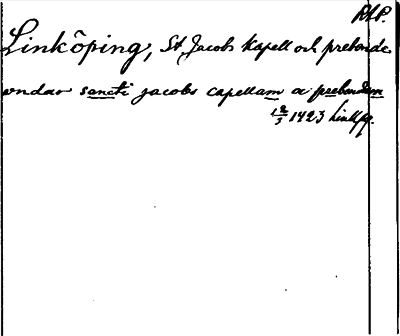 RAP.
Linköping, St Jacobs kapell och prebende
ondar sancti jacobs capellam a prebendam
12/3 1423 Linkpg.